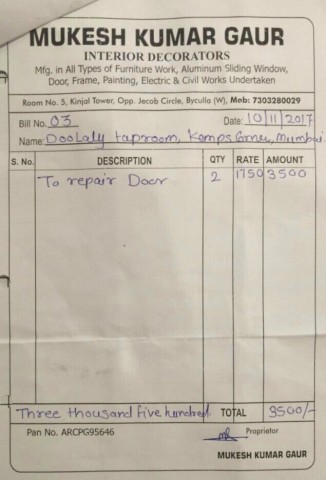 MUKESH KUMAR GAUR
INTERIOR DECORATORS
Mfg. in All Types of Furniture Work, Aluminum Sliding Window,
Door, Frame, Painting, Electric & Civil Works Undertaken
Room No. 5, Kinjal Tower, Opp. Jecob Circle, Byculla (W), Mob: 7303280029
Bill No. 03 Date: 10/11/2017
Name: Doolaly taproom, Kemps Corner, Mumbai.
S. No. DESCRIPTION QTY RATE AMOUNT
To repair Door 2 1750 3500
Three thousand five hundred TOTAL 3500/-
Pan No. ARCPG95646 Proprietor
MUKESH KUMAR GAUR